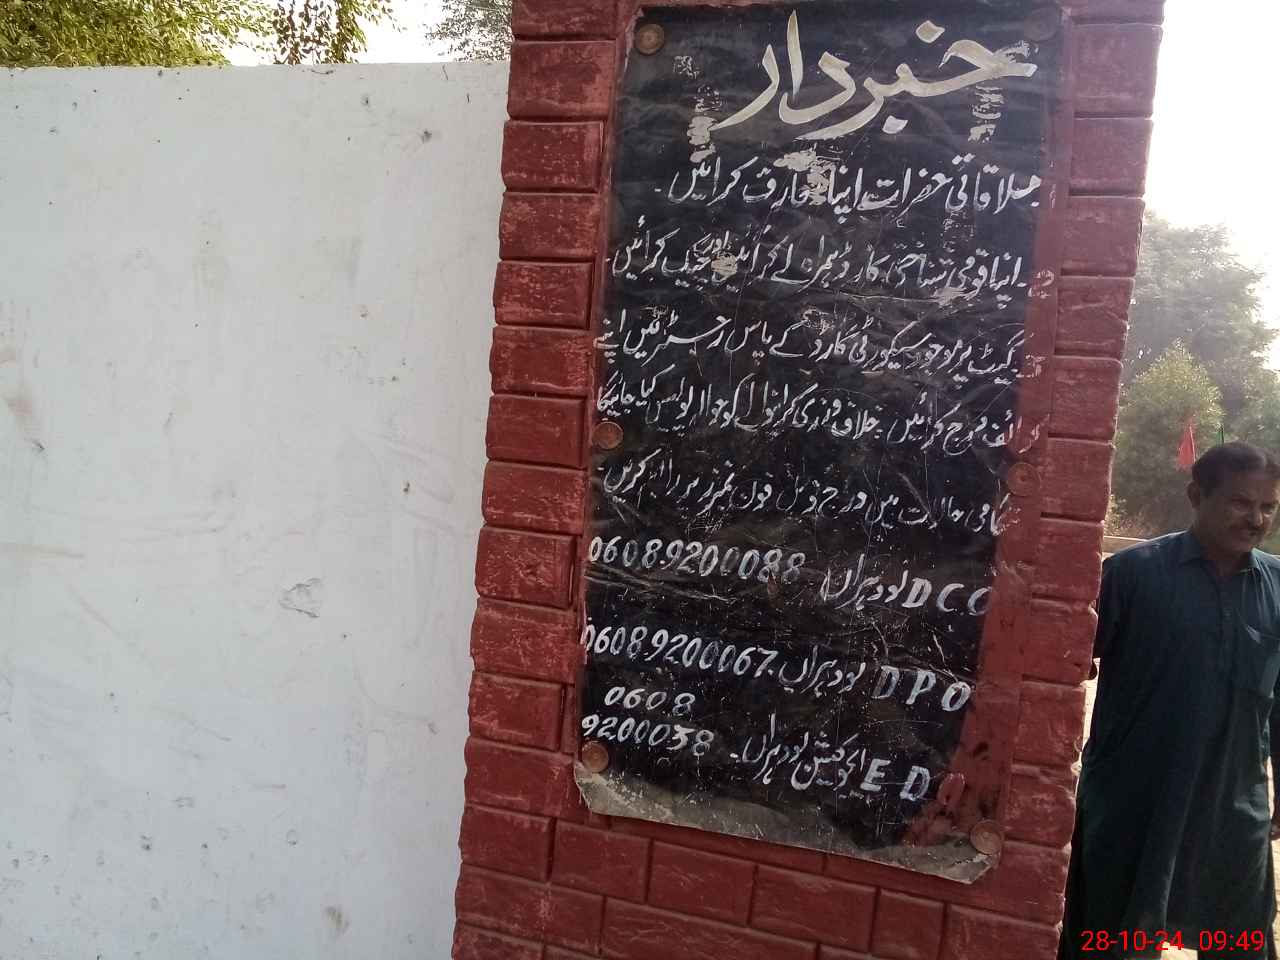 خبردار
ملاقاتی حضرات اپنا تعارف کرائیں۔
۔ اپنا قومی شناختی کارڈ ہمراہ لے کر آئیں اور چیک کرائیں۔
گیٹ پر موجود سیکورٹی گارڈ کے پاس رجسٹر میں اپنے
کوائف درج کرائیں۔ خلاف ورزی کرنیوالے کو حوالہ پولیس کیا جائیگا
حالات میں درج ذیل فون نمبرز پر رابطہ کریں۔
DCO لودہراں 0608.9200088
DPO لودہراں. 0608.9200067
0608
EDO ایجوکیشن لودہراں۔ 9200038
28-10-24 09:49